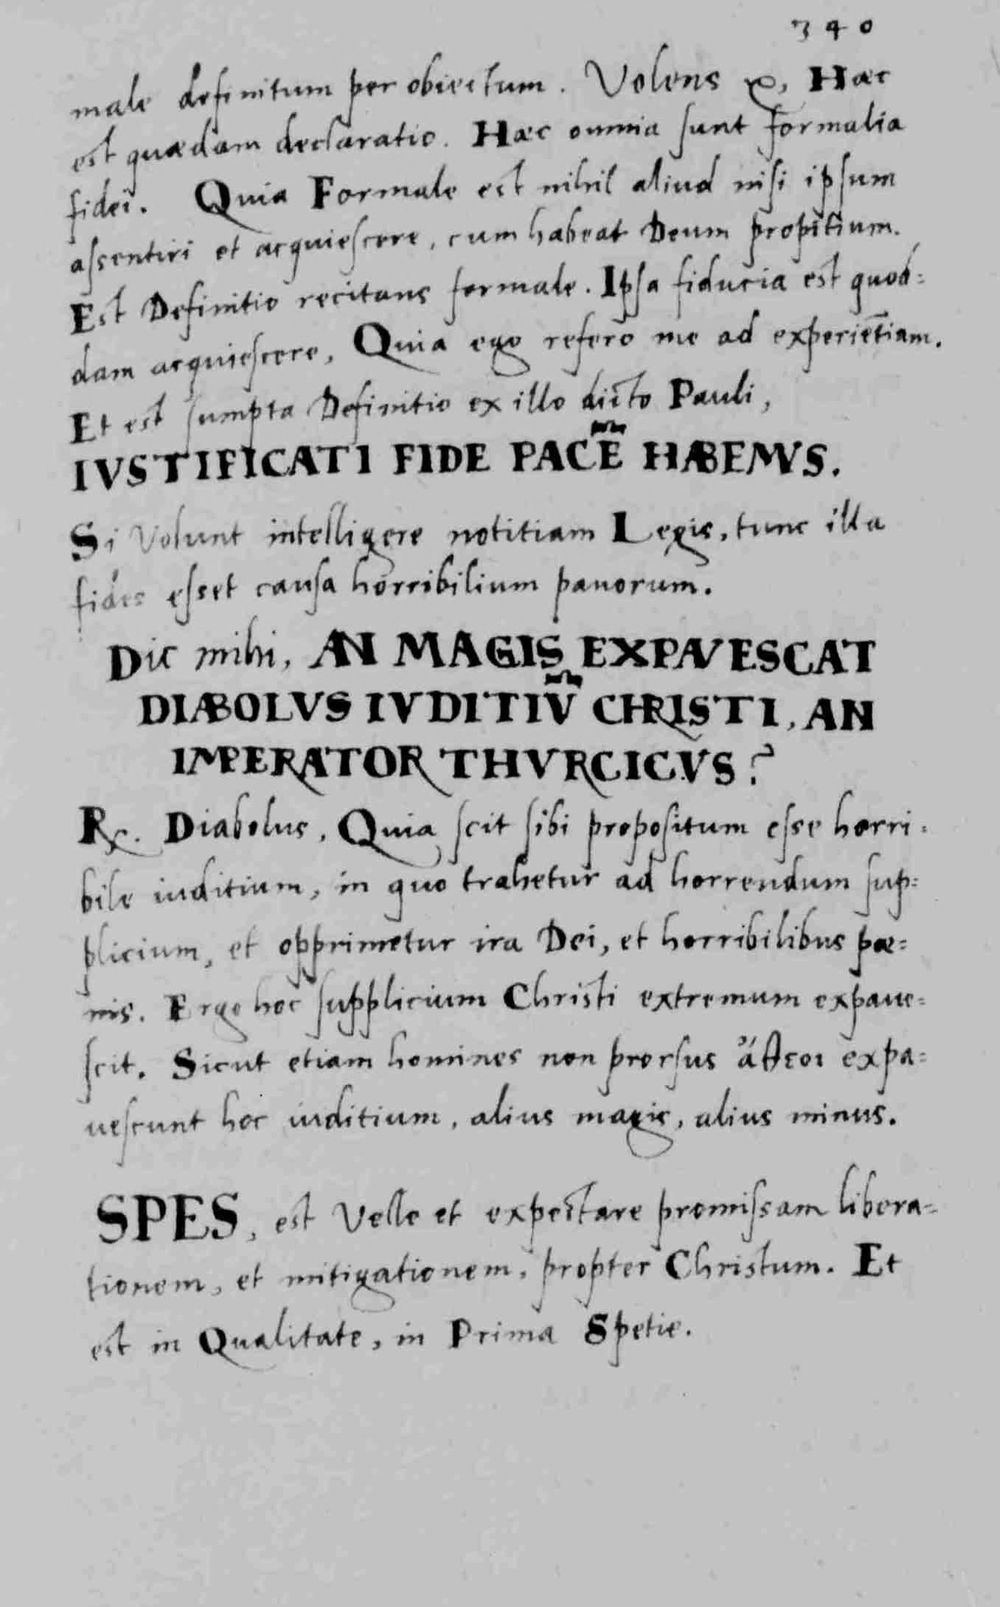 340
male definitum per obiectum. Volens ꝛc, Haec
est quædam declaratio. Haec omnia sunt formalia
fidei. Quia Formale est nihil aliud nisi ipsum
assentiri et acquiescere, cum habeat Deum propitium.
Est Definitio recitans formale. Ipsa fiducia est quod=
dam acquiescere, Quia ego refero me ad experiētiam.
Et est sumpta Definitio ex illo dicto Pauli,
IVSTIFICATI FIDE PACE̅ HABEMVS.
Si Volunt intelligere notitiam Legis, tunc illa
fides esset causa horribilium pauorum.
Dic mihi, AN MAGIS EXPAVESCAT
DIABOLVS IVDITIV̅ CHRISTI, AN
IMPERATOR THVRCICVS?
℞. Diabolus, Quia scit sibi propositum esse horri=
bile iuditium, in quo trahetur ad horrendum sup=
plicium, et opprimetur ira Dei, et horribilibus pæ=
nis. Ergo hoc supplicium Christi extremum expaue=
scit. Sicut etiam homines non prorsus ἄθεοι expa=
uescunt hoc iuditium, alius magis, alius minus.
SPES, est Velle et expectare promissam libera=
tionem, et mitigationem, propter Christum. Et
est in Qualitate, in Prima Spetie.